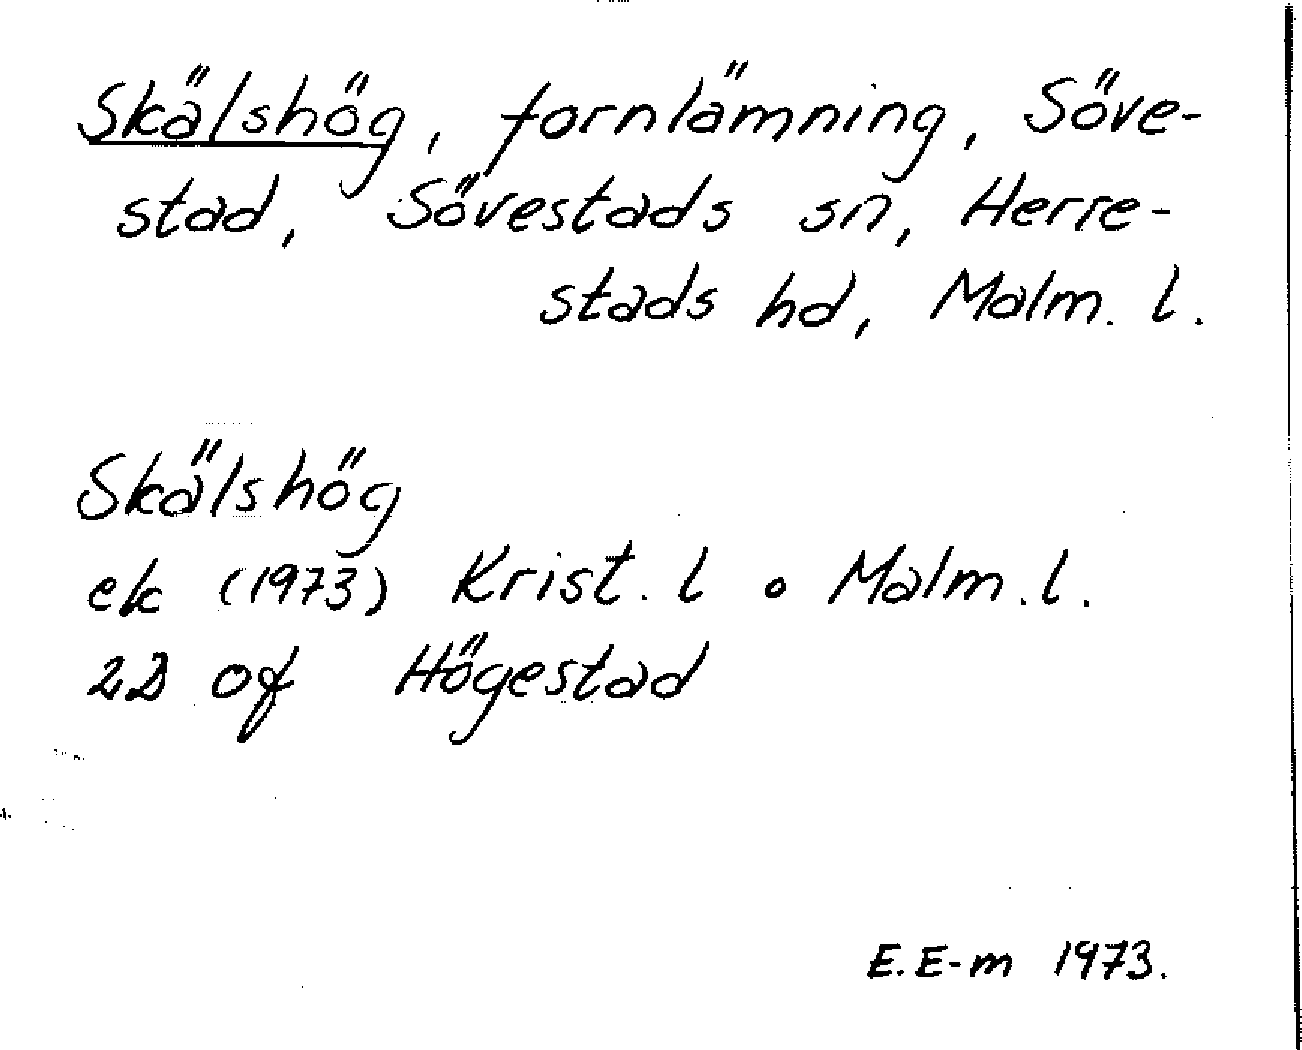 Skälshög, fornlämning, Söve-
stad, Sövestads sn, Herre-
stads hd, Malm. l.
Skälshög
ek (1973) Krist. l o Malm. l.
2D of Högestad
E. E-m 1973.